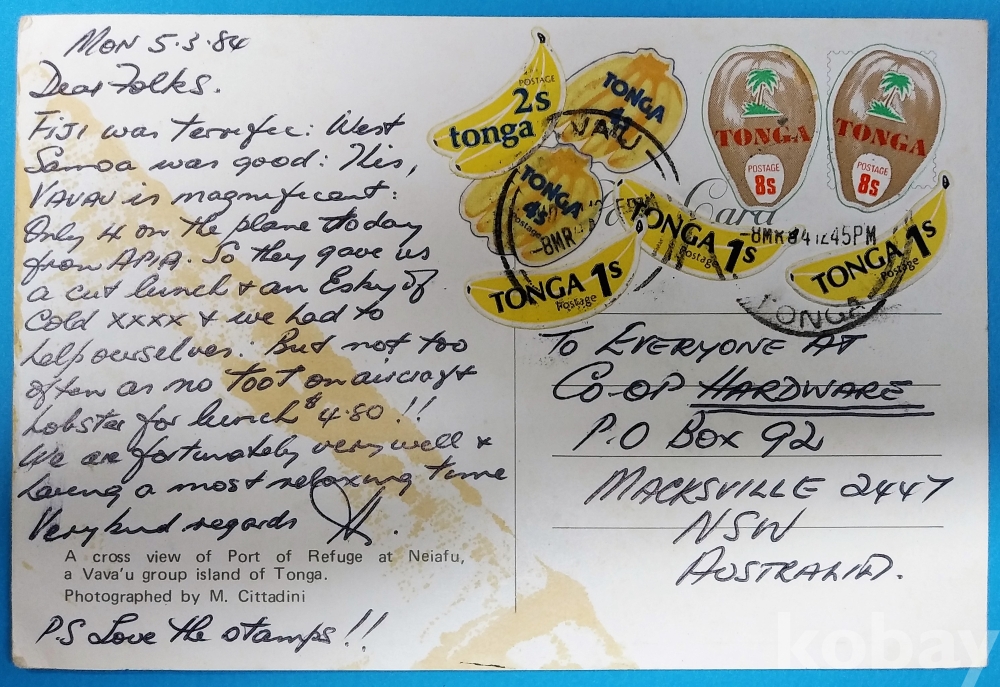 MON 5.3.84
Dear Folks.
FIJI was terrific: West
Samoa was good: This,
VAVAU is magnificent:
Only 4 on the plane today
from APIA. So they gave us
a cut lunch & an Esky of
Cold xxxx & we had to
help ourselves. But not too
often as no toot on aircraft
Lobster for lunch $4.80 !!
We are fortunately very well &
having a most relaxing time
Very kind regards
A cross view of Port of Refuge at Neiafu,
a Vava'u group island of Tonga.
Photographed by M. Cittadini
P.S Love the stamps!!
POSTAGE
2s
tonga
TONGA
TONGA
4s
Postage
TONGA 1s
Postage
TONGA 1s
Postage
TONGA 1s
Postage
TONGA
POSTAGE
8s
TONGA
POSTAGE
8s
Card
VAVAU
-8MR
-8MR84 1245PM
TONGA
To EVERYONE AT
CO-OP HARDWARE
P.O Box 92
MACKSVILLE 2447
NSW
AUSTRALIA.
kobay